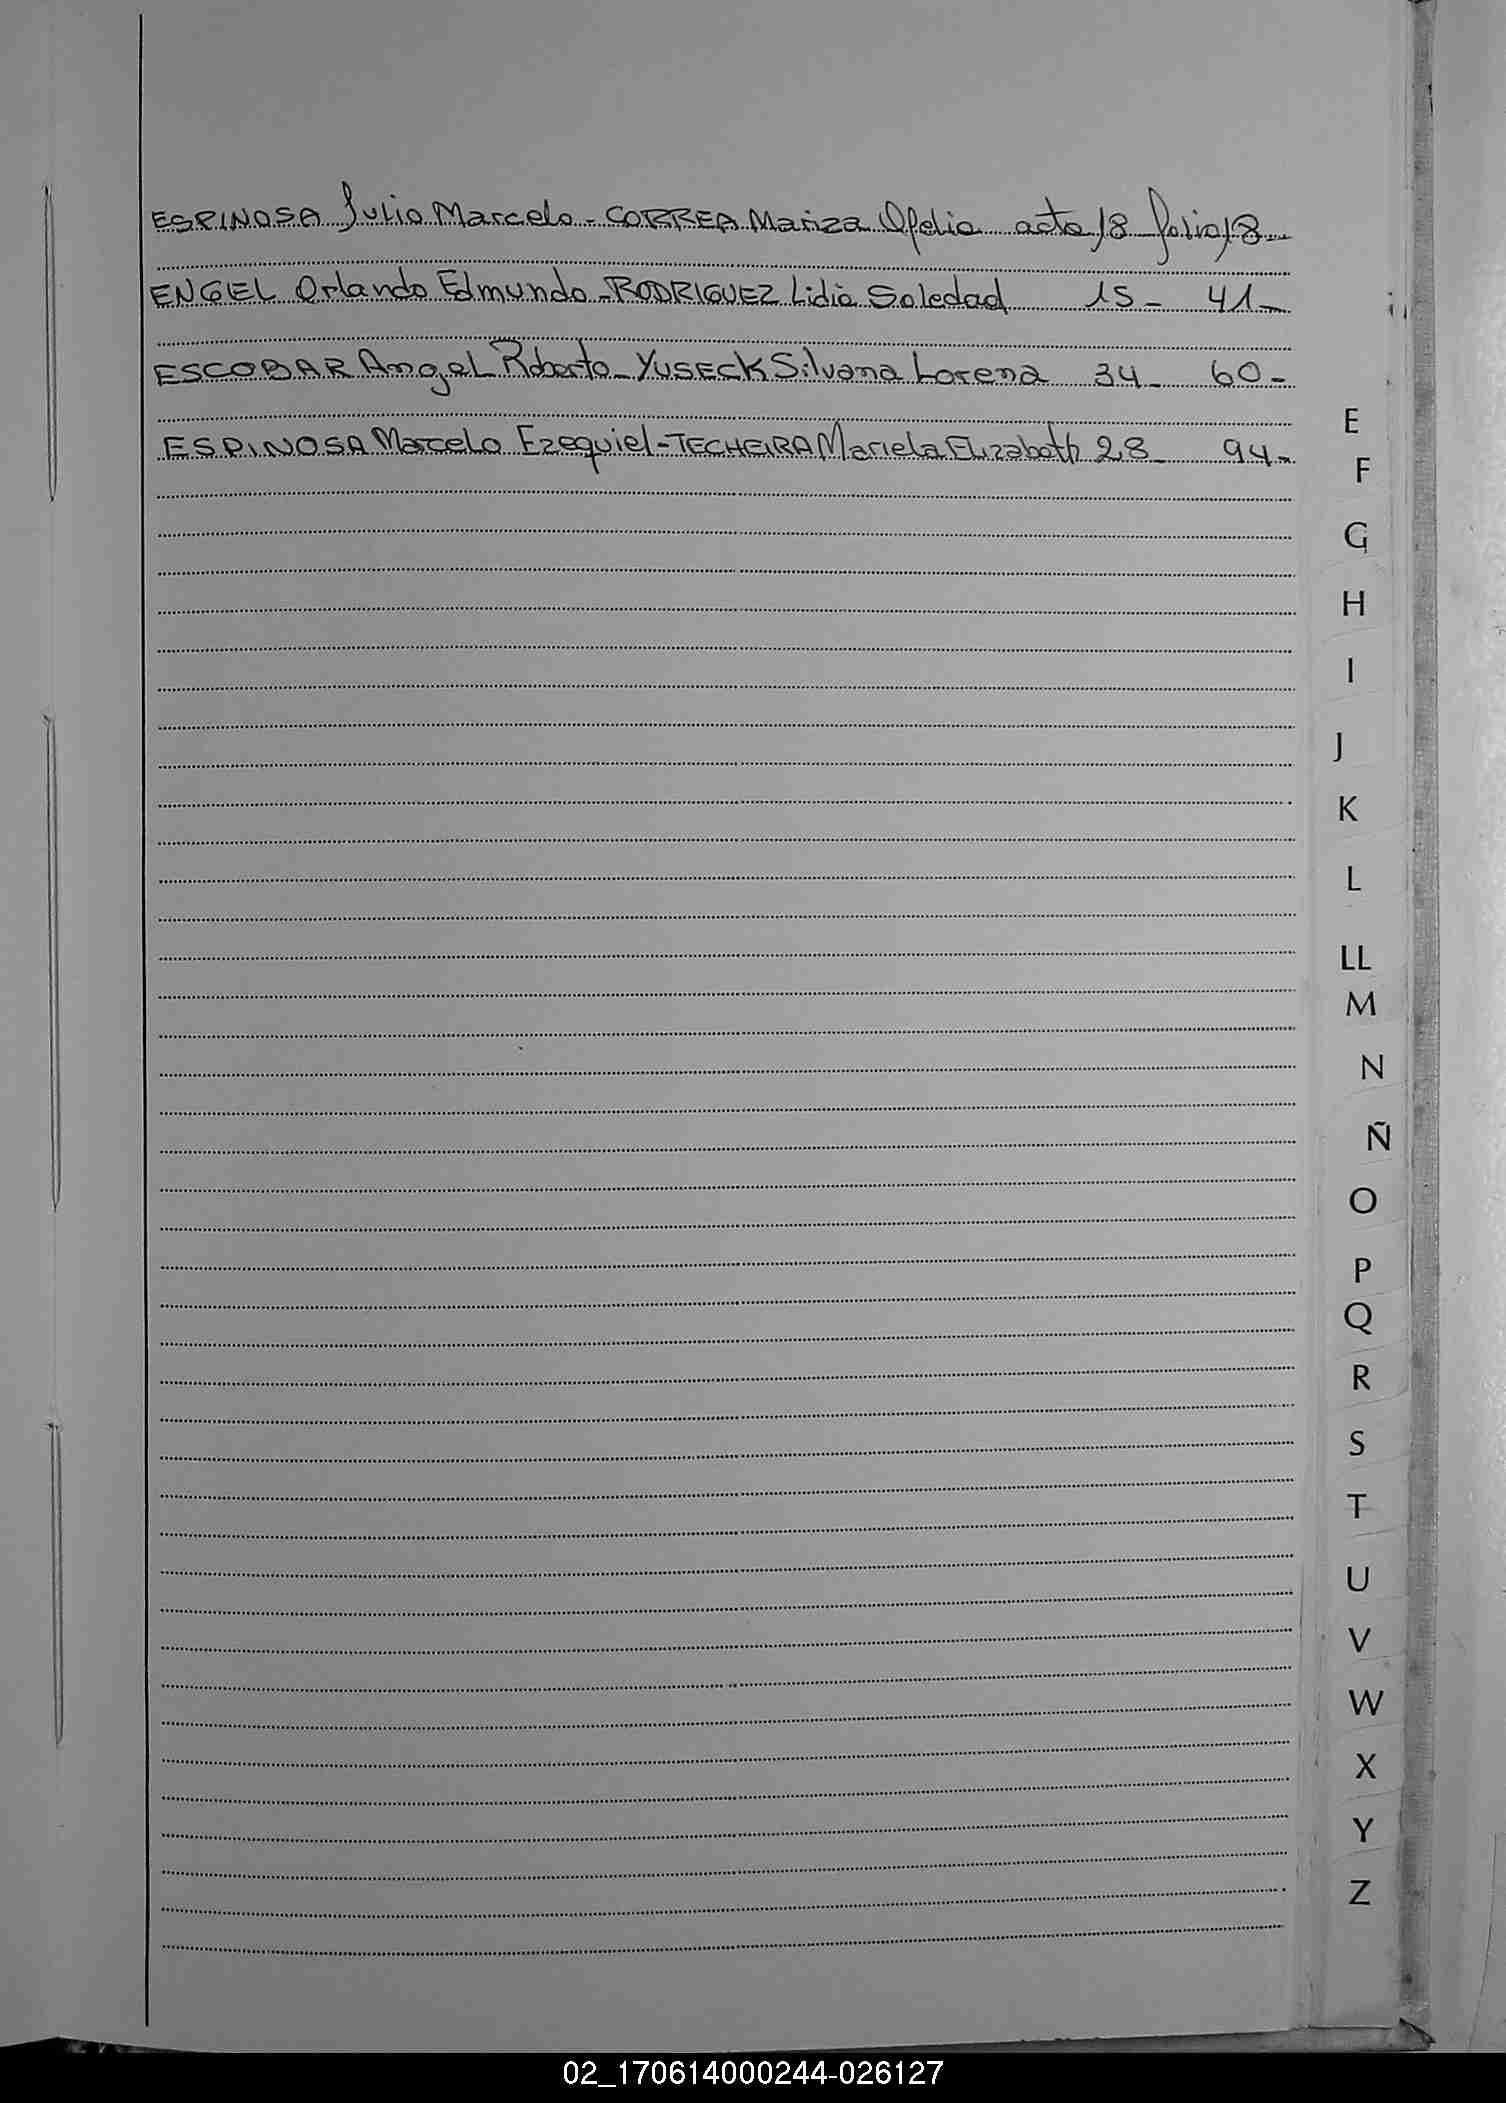 ESPINOSA Julio Marcelo - CORREA Mariza Ofelia acta 18 folio 18-
ENGEL Orlando Edmundo - RODRIGUEZ Lidia Soledad 15- 41-
ESCOBAR Angel Roberto - YUSECK Silvana Lorena 34- 60-
ESPINOSA Marcelo Ezequiel - TECHEIRA Mariela Elizabeth 28- 94-
E
F
G
H
I
J
K
L
LL
M
N
Ñ
O
P
Q
R
S
T
U
V
W
X
Y
Z
02_170614000244-026127